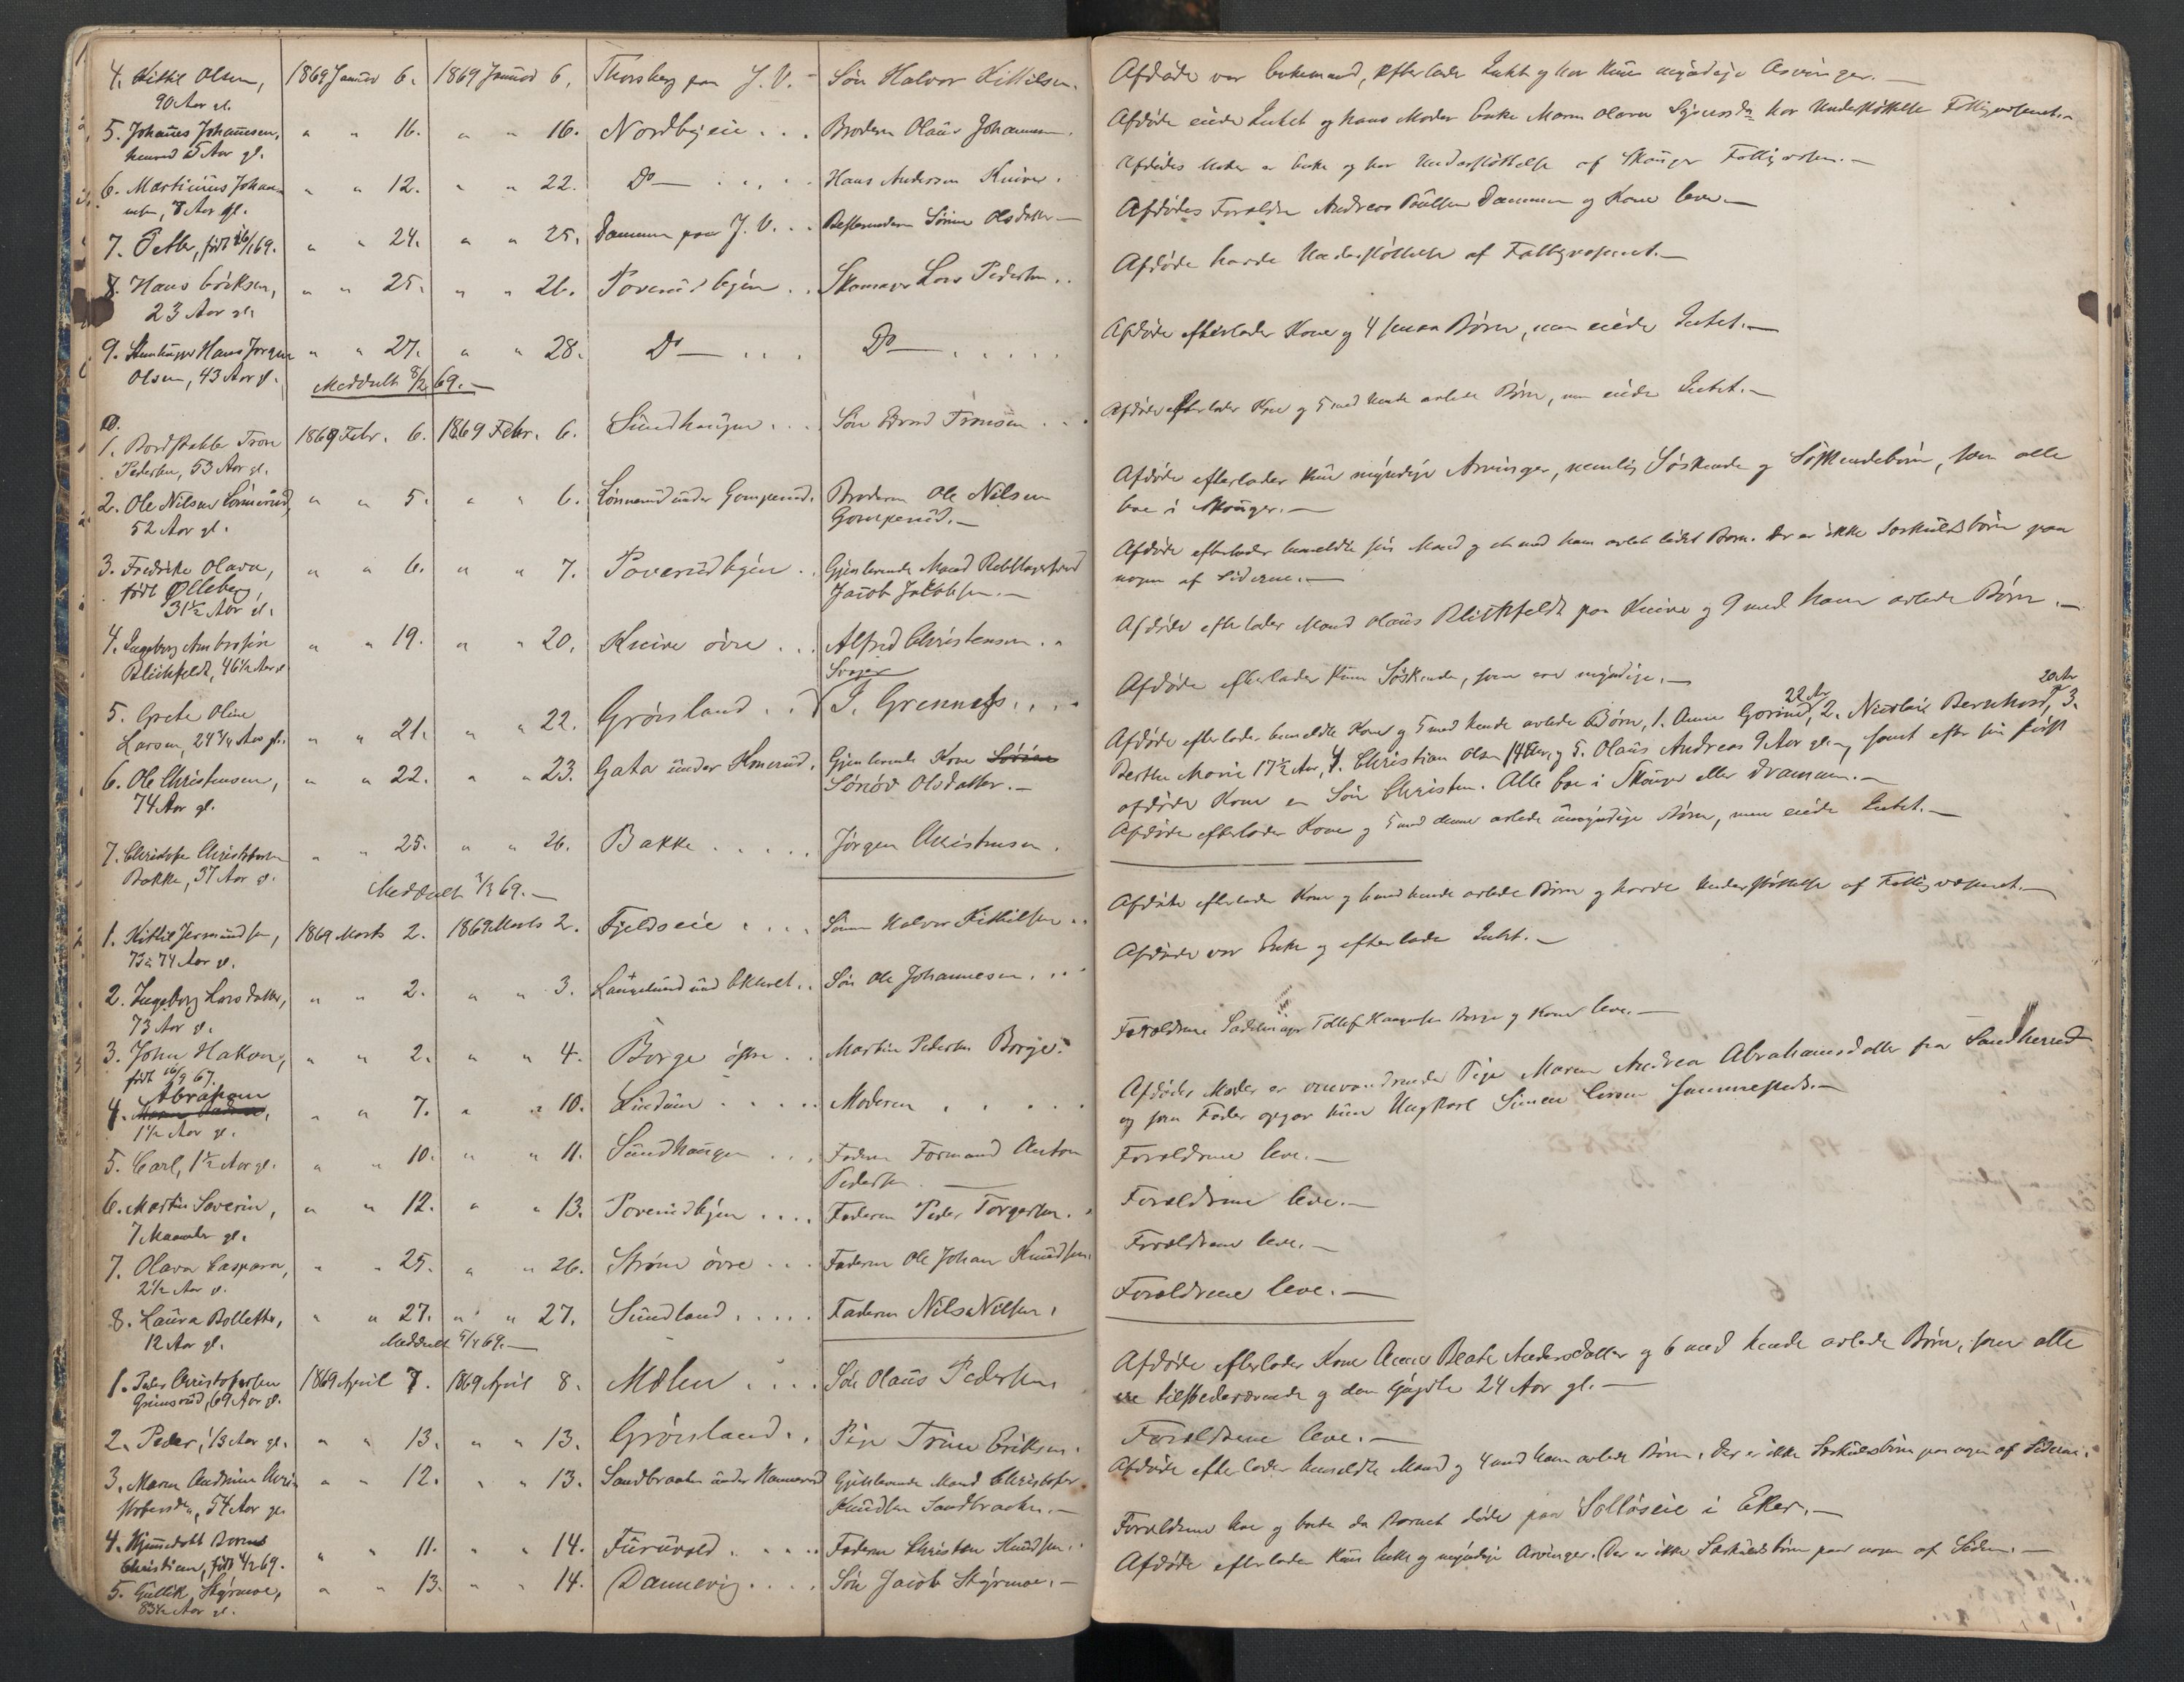 4. Kittil Olsen, 1869 Januar 6. 1869 Januar 6, Thorsberg paa J. V. - Søn Halvor Kittilsen.
90 Aar gl.
5. Johannes Johannesen, " " 16. " " 16. Nordbyeie . . . Broderen Olaus Johannesen.
henved 15 Aar gl.
6. Martinius Johan- " " 12. " " 22. Do — . . . . Hans Andersen Knive.
nesen, 8 Aar gl.
7. Petter, født 16/1 69. " " 24. " " 25. Dammen paa J. V. . . Bestemoderen Sørine Olsdatter —
8. Hans Eriksen, " " 25. " " 26. Poverudbyen . . Skomager Lars Pedersen . .
23 Aar gl.
9. Stenhugger Hans Jørgen " " 27. " " 28. Do — . . . Do — . . . . .
Olsen, 43 Aar gl.
Meddelt 8/2 69. —
1. Bordstabler Tron 1869 Febr. 6. 1869 Febr. 6. Sundhaugen . . . Søn Tronsen . . .
Pedersen, 53 Aar gl.
2. Ole Nilsen Lønnerud, " " 5. " " 6. Lønnerud under Gomperud. Broderen Ole Nilsen
52 Aar gl. Gomperud. —
3. Fredrikke Olava, " " 6. " " 7. Poverudbyen . . Gjenlevende Mand Rebslagersvend
født Ølleberg, Jacob Jakobsen. —
31 1/2 Aar gl.
4. Ingeborg Ambrosine " " 19. " " 20. Knive övre . . . Alfred Christensen . "
Blichfeldt, 46 1/2 Aar gl. Svoger
5. Grete Oline " " 21. " " 22. Grøisland . . J. Grennes . . . .
Larsen, 24 3/4 Aar gl.
6. Ole Christensen, " " 22. " " 23. Gata under Homerud. Gjenlevende Kone Sørine
74 Aar gl. Sønøv Olsdatter. —
7. Christofer Christofersen " " 25. " " 26. Bakke . . . . . Jørgen Christensen.
Bakke, 37 Aar gl.
Meddelt 3/3 69. —
1. Kittil Jermundsen, 1869 Marts 2. 1869 Marts 2. Fjeldseie . . . . Sønnen Halvor Kittilsen . .
73 à 74 Aar gl.
2. Ingeborg Larsdatter, " " 2. " " 3. Langelund und . . Søn Ole Johannesen. . . .
73 Aar gl.
3. John Hakon, " " 2. " " 4. Borge östre . . Martin Pedersen Borge.
født 16/9 67.
Abraham
4. Maren Andrea, " " 7. " " 10. Lindum . . . . . Moderen . . . . .
1 1/2 Aar gl.
5. Carl, 1 1/2 Aar gl. " " 10. " " 11. Sundhaugen . . . Faderen Formand Anton
Pedersen. —
6. Martin Severin, " " 12. " " 13. Poverudbyen . . . . Faderen Peder Torgersen. .
7 Maaneder gl.
7. Olava Caspara, " " 25. " " 26. Strøm övre . . . Faderen Ole Johan Knudsen.
2 1/2 Aar gl.
8. Laura Bolette, " " 27. " " 27. Sundland . . . . . Faderen Nils Nilsen.
12 Aar gl.
Meddelt 5/4 69. —
1. Peder Christofersen 1869 April 7. 1869 April 8. Mælen . . . . Søn Olaus Pedersen
Grimsrud, 69 Aar gl.
2. Peder, 1/3 Aar gl. " " 13. " " 13. Grøisland. . Pige Trine Eriksen.
3. Maren Andrine Chri- " " 12. " " 13. Sandbraaten under Gjenlevende Mand Christofer
stofersdtr., 54 Aar gl. Knudsen Sandbraaten. —
4. Hjemmedøbt Barn " " 11. " " 14. Furuvold . . . . . Faderen Christen Knudsen. .
Christian, født 4/2 69.
5. Gullik Styrmoe, " " 13. " " 14. Dannevig . . . . Søn Jacob Styrmoe. —
83 1/2 Aar gl.
Afdøde var Enkemand, efterlader Intet og har kun myndige Arvinger. —
Afdøde eiede Intet og hans Moder Enke Maren Olava har Understøttelse Fattigvæsenet. —
Afdødes Moder er Enke og har Understøttelse af Skouger Fattigvæsen. —
Afdødes Forældre Andreas Paulsen Dammen og Kone leve. —
Afdøde havde Understøttelse af Fattigvæsenet. —
Afdøde efterlader Kone og 4 smaa Børn, men eiede Intet. —
Afdøde efterlader Kone og 5 med hende avlede Børn, men eiede Intet. —
Afdøde efterlader kun myndige Arvinger, nemlig Søskende og Søskendebørn, som alle
boe i Skouger. —
Afdøde efterlader bemeldte sin Mand og et med ham avlet lidet Barn. Der er ikke Særkuldsbørn paa
nogen af Siderne. —
Afdøde efterlader Mand Olaus Blichfeldt paa Knive og 9 med ham avlede Børn. —
Afdøde efterlader kun Søskende, som ere myndige. —
22 Ar 20 Ar
Afdøde efterlader bemeldte Kone og 5 med hende avlede Børn, 1. Anne Gorine, 2. Nicolai Bernhard, 3.
Berthe Marie 17 1/2 Aar, 4. Christian Olsen 14 Aar, og 5. Olaus Andreas 9 Aar gl. —, samt efter sin først
afdøde Kone en Søn Christen. Alle boe i Skouger eller Drammen. —
Afdøde efterlader Kone og 5 med denne avlede umyndige Børn, men eiede Intet. —
Afdøde efterlader Kone og 6 med hende avlede Børn og havde Understøttelse af Fattigvæsenet. —
Afdøde var Enke og efterlader Intet. —
Forældrene Sadelmager Tollef Borge og Kone leve. —
Afdødes Moder er omvandrende Pige Maren Andrea Abrahamsdatter fra Sandherred
og som Fader opgav hun Ungkarl Simen sammesteds. —
Forældrene leve. —
Forældrene leve. —
Forældrene leve. —
Forældrene leve. —
Afdøde efterlader Kone Anne Beate Andersdatter og 6 med hende avlede Børn, som alle
ere tilstedeværende og den yngste 24 Aar gl. —
Forældrene leve. —
Afdøde efterlader bemeldte Mand og 4 med ham avlede Børn. Der er ikke Særkuldsbørn paa nogen af Siderne.
Forældrene boe og boede da Barnet døde paa Solløseie i Eker. —
Afdøde efterlader kun Enke og myndige Arvinger. Der er ikke Særkuldsbørn paa nogen af Siderne. —